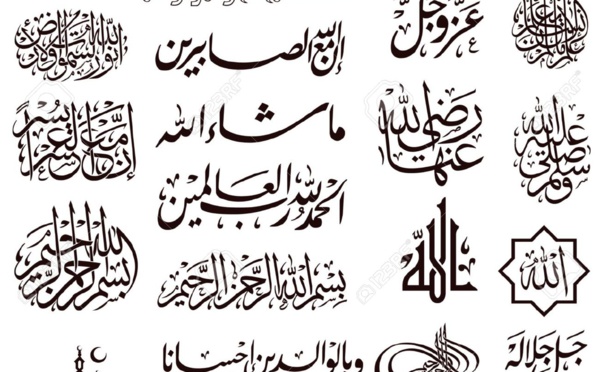 عز وجل
إن الله مع الصابرين
الله نور السموات والأرض
رضي الله عنها
ما شاء الله
إن مع العسر يسرا
صلى الله عليه وسلم
الحمد لله رب العالمين
الله
الله
بسم الله الرحمن الرحيم
بسم الله الرحمن الرحيم
جل جلاله
وبالوالدين إحسانا